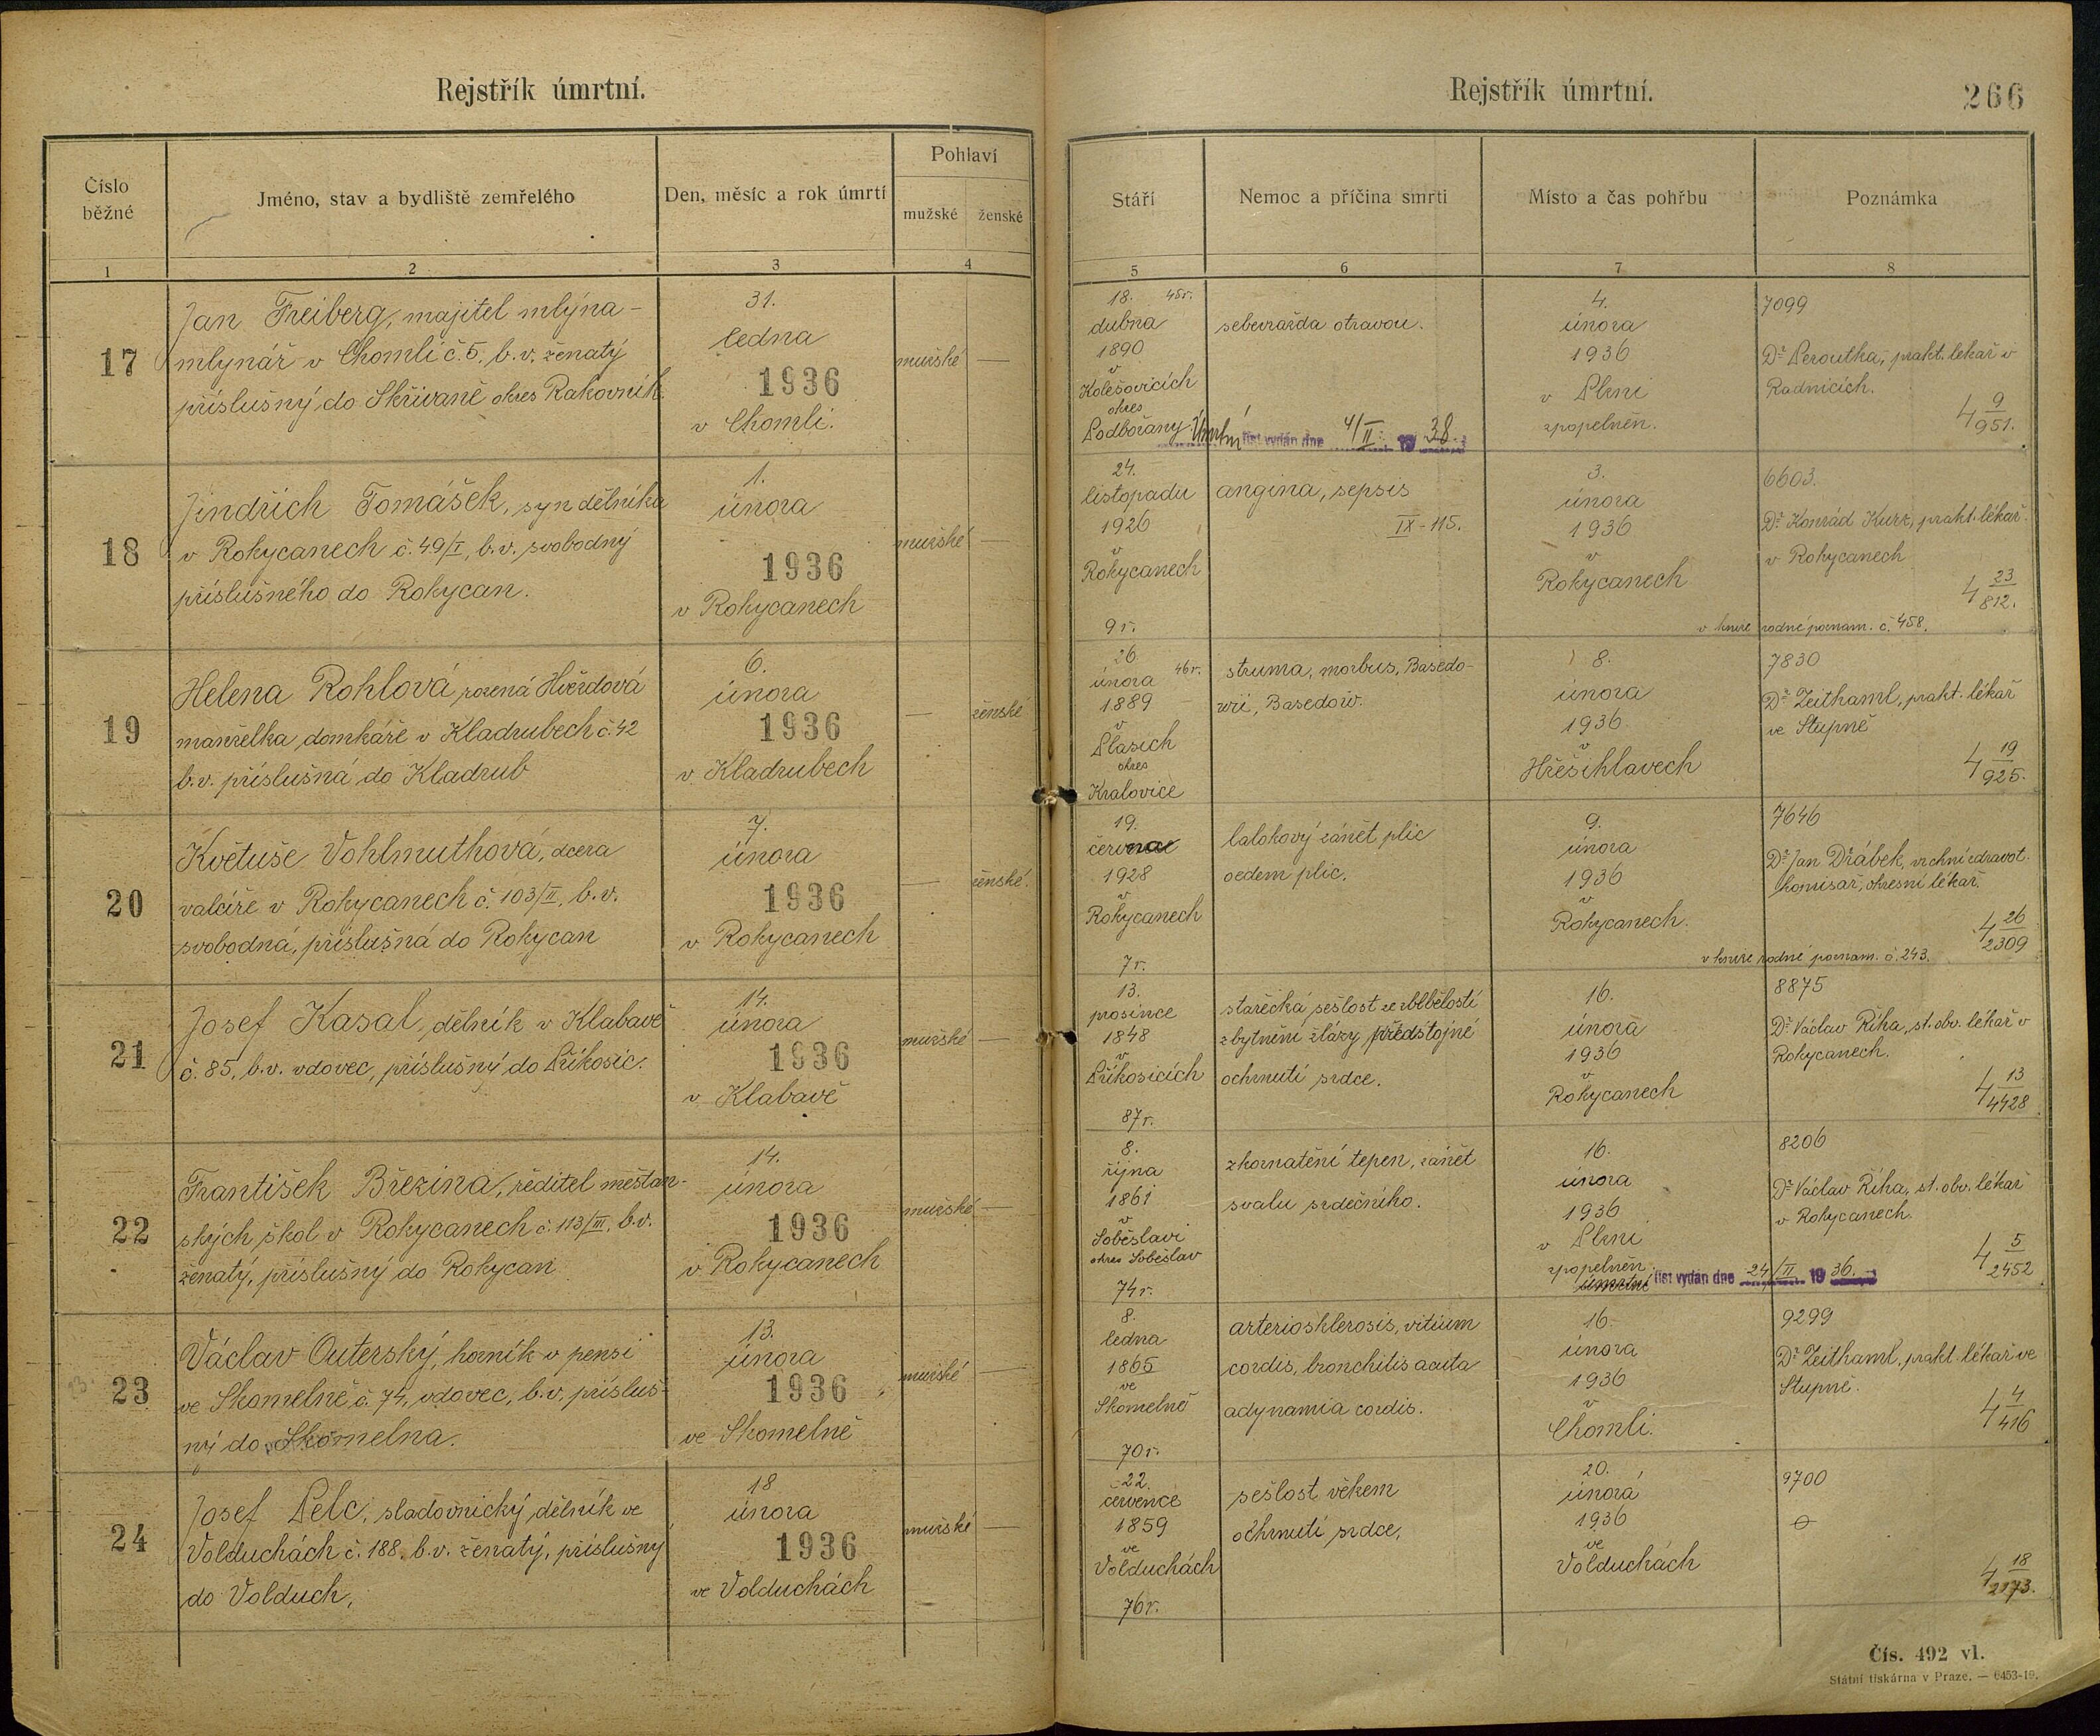 Rejstřík úmrtní.
Číslo běžné
Jméno, stav a bydliště zemřelého
Den, měsíc a rok úmrtí
Pohlaví
mužské
ženské
1
2
3
4
17
Jan Freiberg, majitel mlýna-
mlynář v Chomli č. 5, b. v. ženatý
příslušný do Skřivaně okres Rakovník.
31.
ledna
1936
v Chomli.
mužské
—
18
Jindřich Tomášek, syn dělníka
v Rokycanech č. 49/I, b. v. svobodný
příslušného do Rokycan.
1.
února
1936
v Rokycanech
mužské
—
19
Helena Rohlová rozená Hvězdová
manželka domkáře v Kladrubech č. 42
b. v. příslušná do Kladrub
6.
února
1936
v Kladrubech
—
ženské
20
Květuše Vohlmuthová, dcera
valcíře v Rokycanech č. 103/II, b. v.
svobodná, příslušná do Rokycan
7.
února
1936
v Rokycanech
—
ženské.
21
Josef Kasal, dělník v Klabavě
č. 85, b. v. vdovec, příslušný do Příkosic.
14.
února
1936
v Klabavě
mužské
—
22
František Březina, ředitel měšťan-
ských škol v Rokycanech č. 113/III, b. v.
ženatý, příslušný do Rokycan
14.
února
1936
v Rokycanech
mužské
—
23
Václav Outerský, horník v pensi
ve Skomelně č. 74, vdovec, b. v. přísluš-
ný do Skomelna.
13.
února
1936
ve Skomelně
mužské
—
24
Josef Pelc, sladovnický dělník ve
Volduchách č. 188. b. v. ženatý, příslušný
do Volduch,
18
února
1936
ve Volduchách
mužské
—
Rejstřík úmrtní.
266
Stáří
Nemoc a příčina smrti
Místo a čas pohřbu
Poznámka
5
6
7
8
18. 45r.
dubna
1890
v
Kolešovicích
okres
Podbořany
sebevražda otravou.
Úmrtní list vydán dne 4/II 1938.
4.
února
1936
v Plzni
zpopelněn.
7099
Dr Peroutka, prakt. lékař v
Radnicích.
4 9/951.
24.
listopadu
1926
v
Rokycanech
9 r.
angina, sepsis
IX-115.
3.
února
1936
v
Rokycanech
6603.
Dr Konrád Kurz, prakt. lékař.
v Rokycanech
4 23/812.
v knize rodné poznam. č. 458.
26.
února 46r.
1889
v
Plasích
okres
Kralovice
struma, morbus, Basedo-
wii, Basedow.
8.
února
1936
v
Hřešihlavech
7830
Dr Zeithaml, prakt. lékař
ve Stupně
4 19/925.
19.
1928
v
Rokycanech
7r.
lalokový zánět plic
oedem plic.
9.
února
1936
v
Rokycanech.
7646
Dr Jan Dřábek, vrchní zdravot.
komisař, okresní lékař.
4 26/2309
v knize rodné poznam. č. 243.
13.
prosince
1848
v
Příkosicích
87r.
stařecká sešlost ze zblbělostí
zbytnění žlázy předstojné
ochrnutí srdce.
16.
února
1936
v
Rokycanech
8875
Dr Václav Říha, st. obv. lékař v
Rokycanech.
4 13/4428
8.
října
1861
v
Soběslavi
okres Soběslav
74r.
zkornatění tepen, zánět
svalu srdečního.
16.
února
1936
v Plzni
zpopelněn.
úmrtní list vydán dne 24/II 1936.
8206
Dr Václav Říha, st. obv. lékař
v Rokycanech.
4 5/2452
8.
ledna
1865
ve
Skomelně
70r.
arteriosklerosis, vitium
cordis, bronchitis acuta
adynamia cordis.
16.
února
1936
v
Chomli.
9299
Dr Zeithaml, prakt. lékař ve
Stupně.
4 4/416
22.
července
1859
ve
Volduchách
76r.
sešlost věkem
ochrnutí srdce,
20.
února
1936
ve
Volduchách
9700
4 18/2173.
Čís. 492 vl.
Státní tiskárna v Praze. — 6453-19.